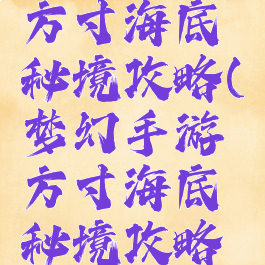 方寸海底
秘境攻略(
梦幻手游
方寸海底
秘境攻略